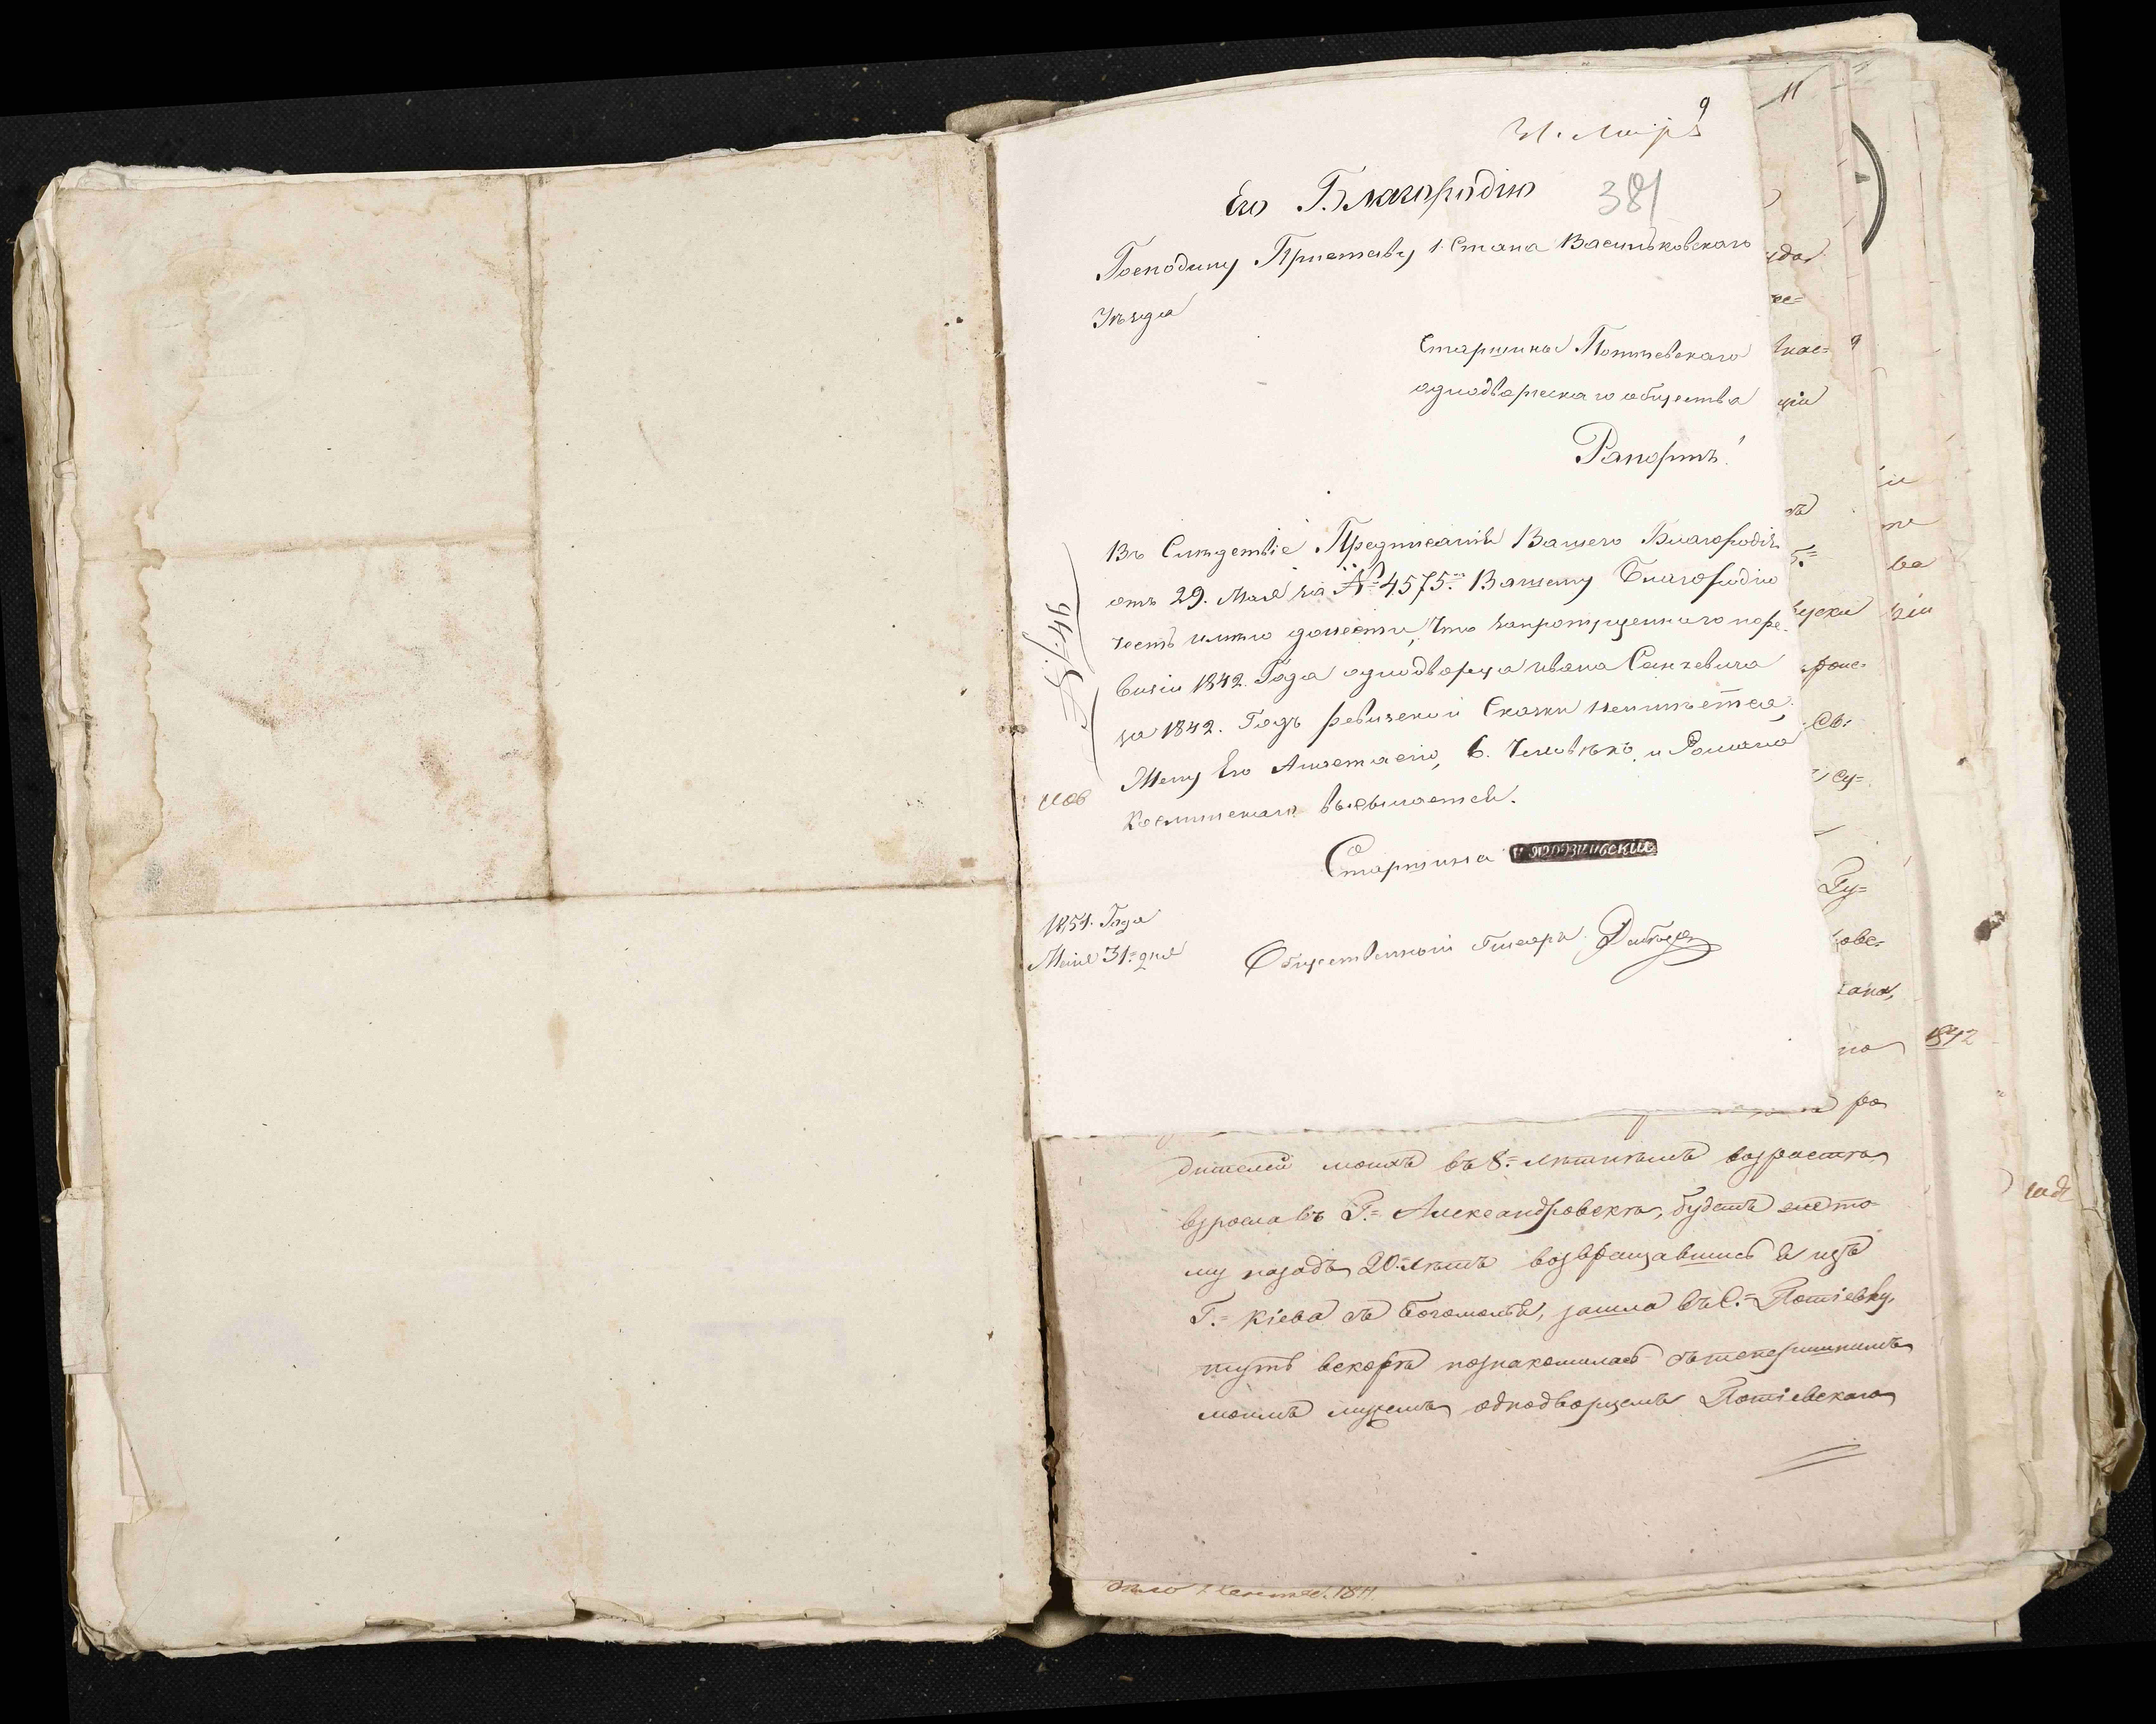 9
381
Его Благородію
Господину Приставу 1. Стана Васильковскаго
Уѣзда
Старшины Потіевскаго
однодворческаго общества
Рапортъ!
Въ Слѣдствіе Предписанія Вашего Благородія
отъ 29. Мая за № 4575. Вашему Благородію
честь имѣю донести, Что запропущеннаго по ре-
визіи 1842. Года однодворца Ивана Санкевича
за 1842. Годъ ревизской Сказки неимѣется,
Жену Его Анастасію, 6. Человѣкъ и Романа
высылается.
Старшина
1851. Года
Мая 31 дня
Общественный Писарь
11
дителей моихъ въ 8. лѣтнемъ возраста,
взросла въ Г. Александровска, будетъ сему то-
му назадъ 20 лѣтъ возвращавшись я изъ
Г. Кіева съ Богомолья, зашла въ С. Потіевку,
тутъ вскорѣ познакомилась съ теперишнимъ
моимъ мужемъ однодворцемъ Потіевскаго
1842